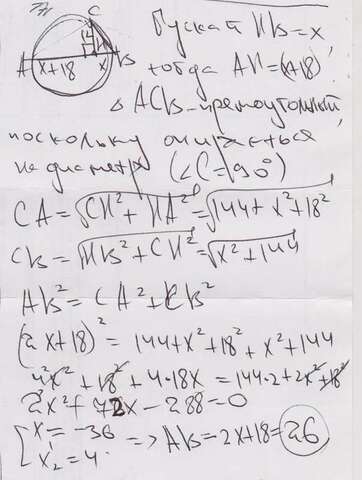 C
Пускай HB = x
12
A x+18 x B тогда AH = (x+18)
Δ ACB - прямоугольный,
поскольку опирається
на диаметр (∠C=90°)
CA = √CH² + HA² = √144 + x² + 18²
CB = √HB² + CH² = √x² + 144
AB² = CA² + CB²
(2x+18)² = 144 + x² + 18² + x² + 144
4x² + 18² + 4·18x = 144·2 + 2x² + 18²
2x² + 72x - 288 = 0
x = -36 => AB = 2x+18 = 26
x₂ = 4